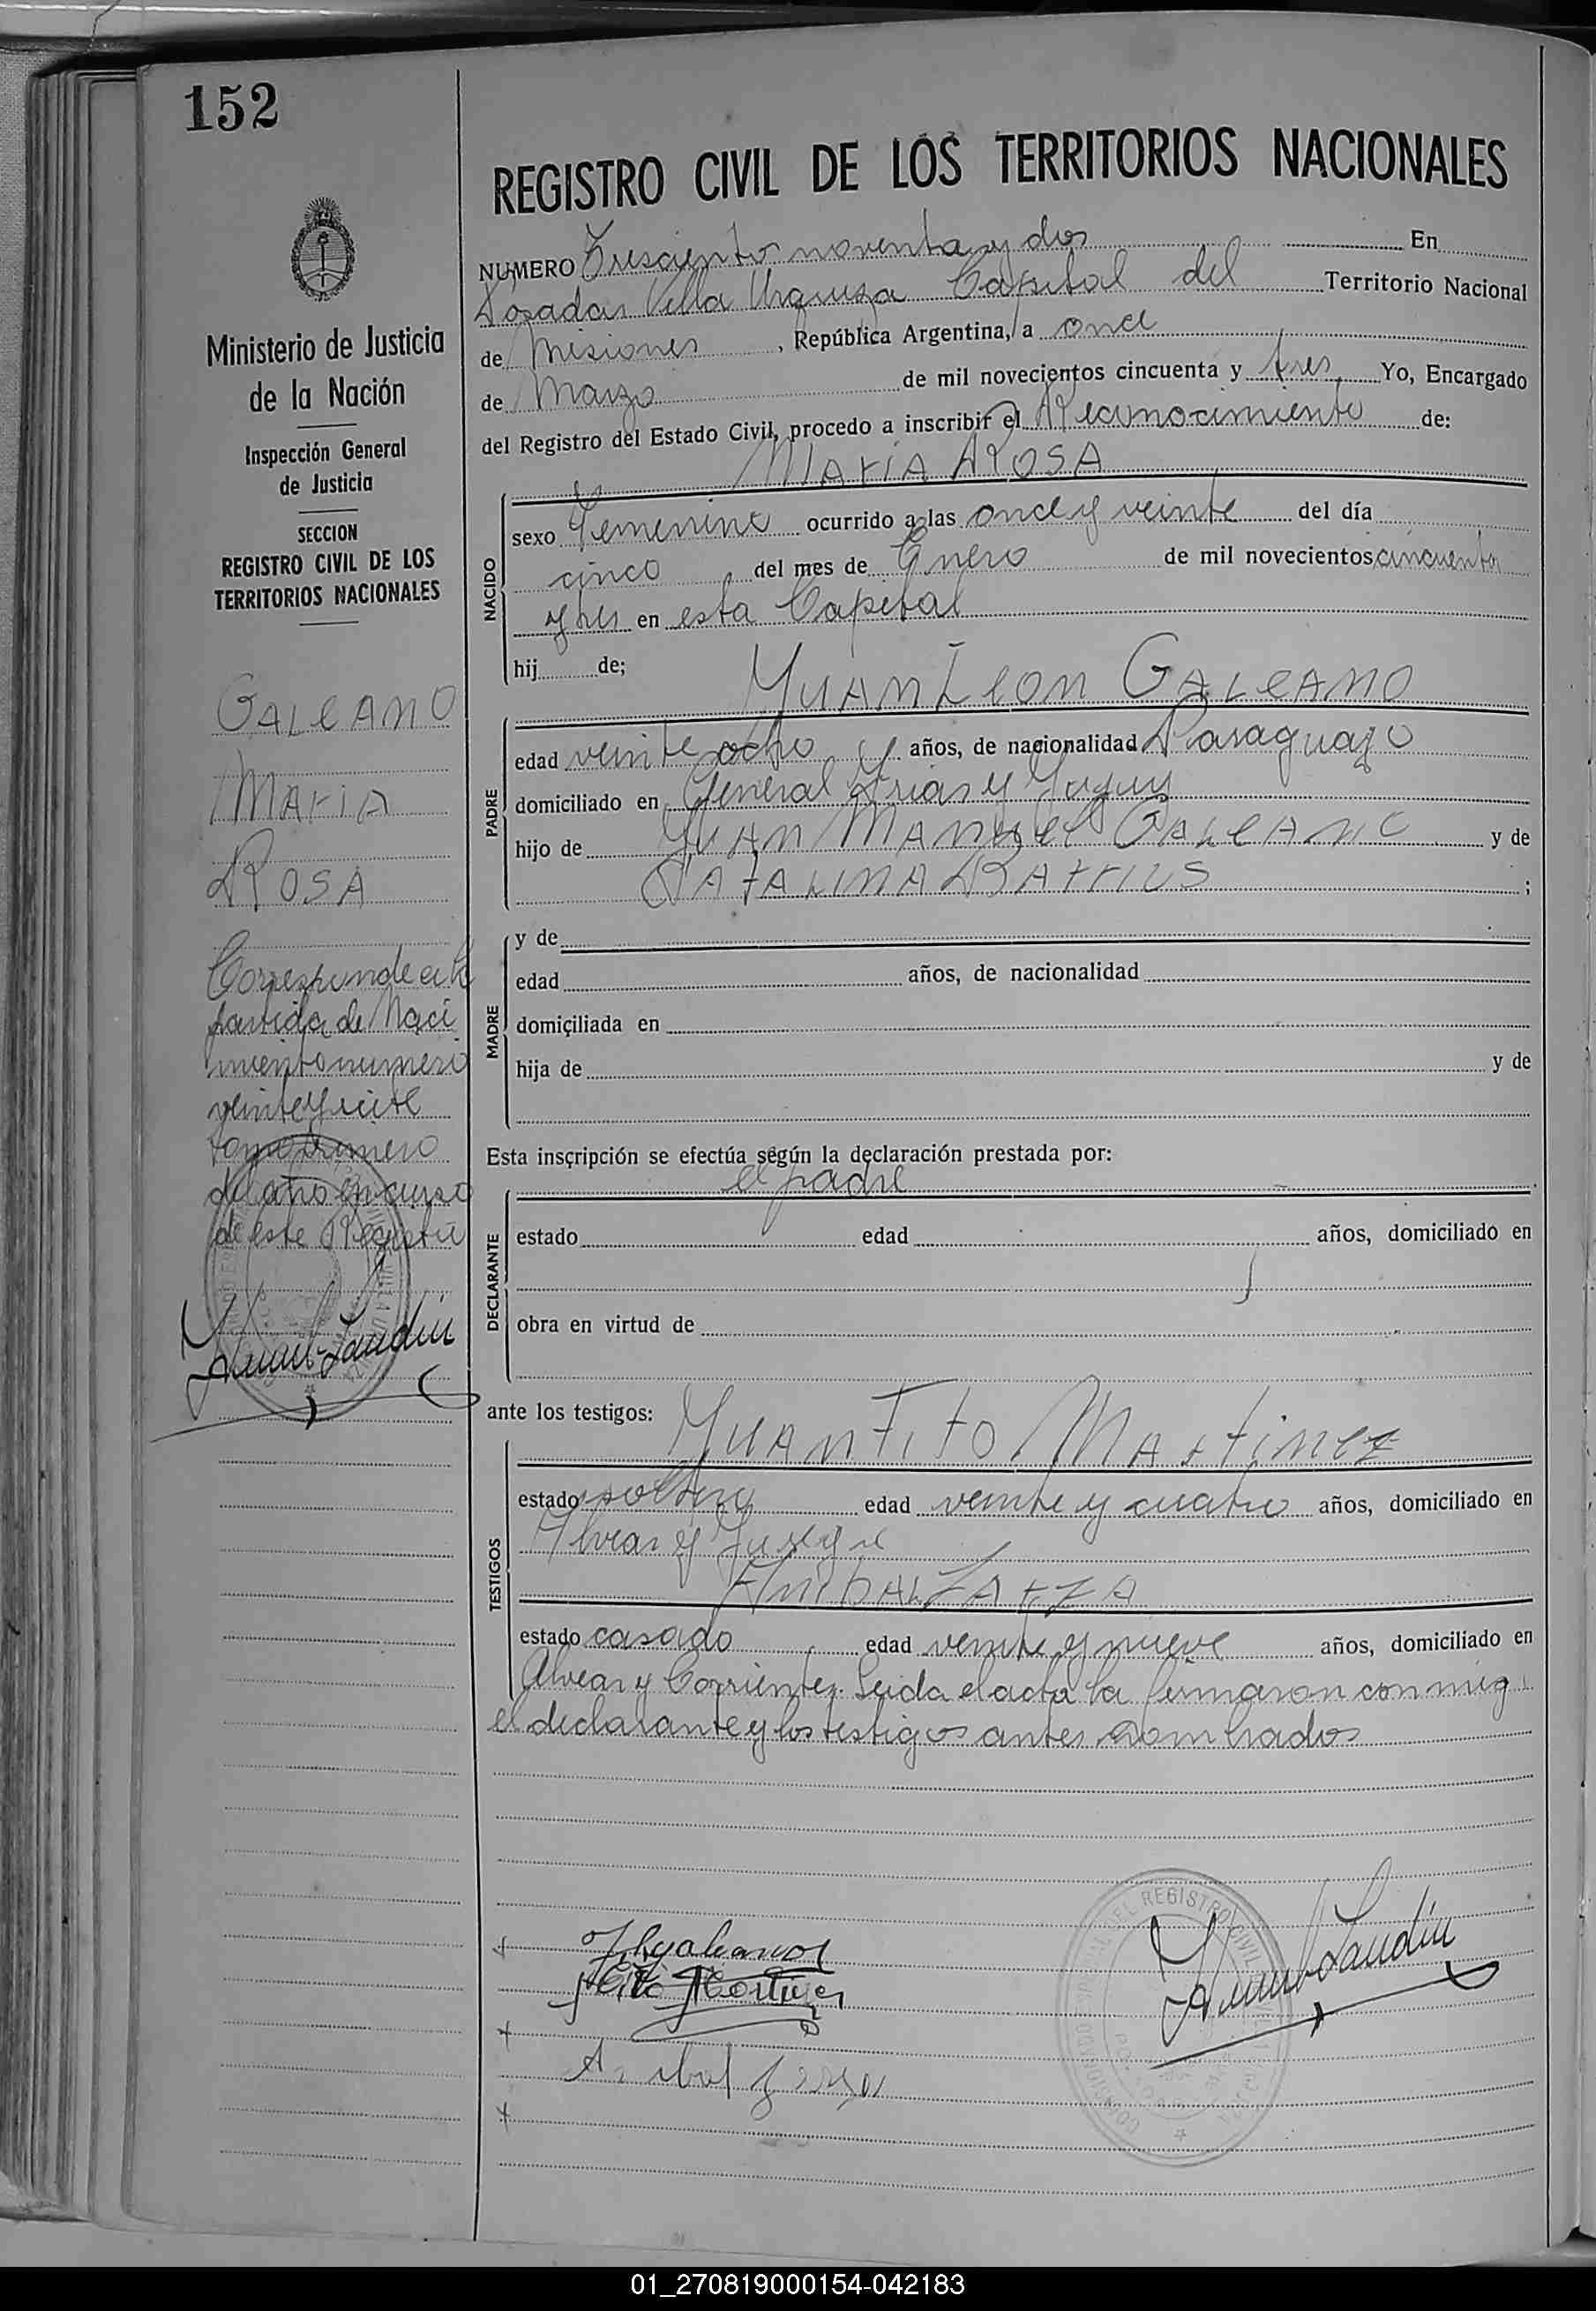 152
REGISTRO CIVIL DE LOS TERRITORIOS NACIONALES
Ministerio de Justicia
de la Nación
Inspección General
de Justicia
SECCION
REGISTRO CIVIL DE LOS
TERRITORIOS NACIONALES
GALEANO
MARIA
ROSA
Corresponde a la
partida de Naci
miento numero
veinte y siete
tomo primero
del año en curso
de este Registro
NUMERO Trescientos noventa y dos En
Posadas Villa Urquiza Capital del Territorio Nacional
de Misiones, República Argentina, a once
de Marzo de mil novecientos cincuenta y tres, Yo, Encargado
del Registro del Estado Civil, procedo a inscribir el Reconocimiento de:
MARIA ROSA
NACIDO
sexo Femenino ocurrido a las once y veinte del día
cinco del mes de Enero de mil novecientos cincuenta
y tres en esta Capital
hij de;
JUAN LEON GALEANO
PADRE
edad veinte ocho años, de nacionalidad Paraguayo
domiciliado en General Frias y Jujuy
hijo de JUAN MANUEL GALEANO y de
CATALINA BARRIOS ;
MADRE
y de
edad años, de nacionalidad
domiciliada en
hija de y de
Esta inscripción se efectúa según la declaración prestada por:
el padre
DECLARANTE
estado edad años, domiciliado en
obra en virtud de
ante los testigos:
JUAN TITO MARTINEZ
TESTIGOS
estado soltero edad veinte y cuatro años, domiciliado en
Alvear y
ANIBAL ZARZA
estado casado edad veinte y nueve años, domiciliado en
Alvear y Corrientes. Leida el acta la firmaron conmigo
el declarante y los testigos antes nombrados
DEL REGISTRO CIVIL
01_270819000154-042183